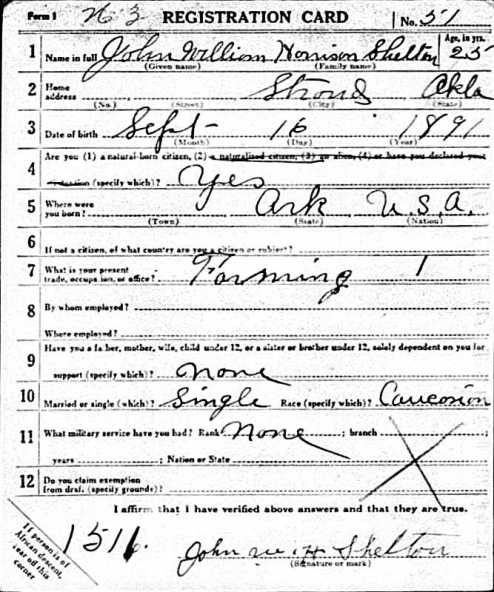 Form 1 REGISTRATION CARD No. 51
1 Name in full John William Horrison Shelton Age, in yrs. 25
(Given name) (Family name)
2 Home address Stroud Okla
(No.) (Street) (City) (State)
3 Date of birth Sept 16 1891
(Month) (Day) (Year)
4 Are you (1) a natural-born citizen, (2) a naturalized citizen, (3) an alien, (4) or have you declared your
intention (specify which)? Yes
5 Where were you born? Ark U.S.A.
(Town) (State) (Nation)
6 If not a citizen, of what country are you a citizen or subject?
7 What is your present trade, occupation, or office? Farming 1
8 By whom employed?
Where employed?
9 Have you a father, mother, wife, child under 12, or a sister or brother under 12, solely dependent on you for
support (specify which)? none
10 Married or single (which)? Single Race (specify which)? Caucasion
11 What military service have you had? Rank None ; branch ;
years ; Nation or State
12 Do you claim exemption from draft (specify grounds)?
I affirm that I have verified above answers and that they are true.
If person is of African descent, tear off this corner
John W. H Shelton
(Signature or mark)